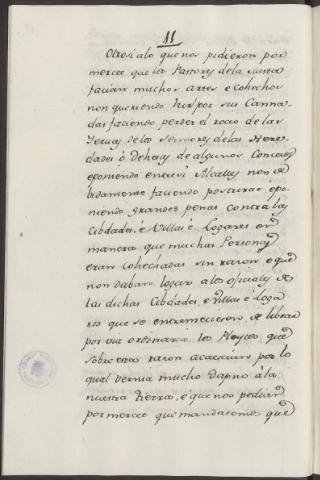 11
Otrosi alo que nos pidieron por
merced que los Pastores dela Mesta
facian muchos artes é cohechos
non queriendo hir por sus Canna-
das faciendo perder el rocio de las
Yervas de los Sennores delas Here-
dades ó dehesas de algunos Concejos
eponiendo entre si Alcaldes non de-
bidamente faciendo posturas é po-
niendo grandes penas contra las
Cibdades, é Villas é Logares en
manera que muchas Personas
eran cohechadas sin razon e que
non daban logar alos oficiales de
las dichas Cibdades, e villas é Loga-
res que se entremeciesen de librar
por via ordinaria los Pleytos, que
sobre esta razon acaescian por lo
qual vernia mucho dapno á la
nuestra tierra, é que nos pedian
por merced que mandasemos que